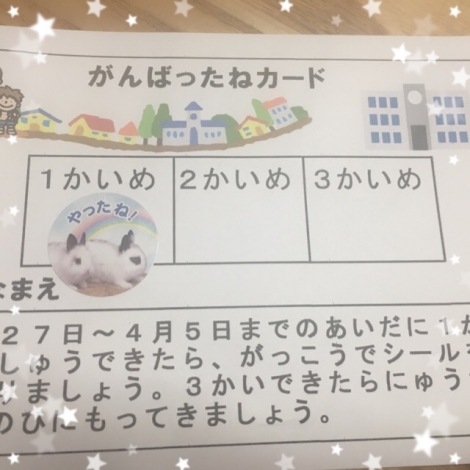 がんばったねカード
1かいめ 2かいめ 3かいめ
やったね!
なまえ
27日～4月5日までのあいだに1か
しゅうできたら、がっこうでシール
りましょう。3かいできたらにゅう
のひにもってきましょう。